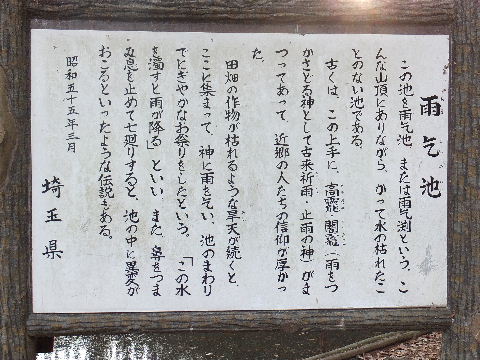 雨乞池
この池を雨乞池、または雨乞渕という。こ
んな山頂にありながら、かつて水の枯れたこ
とのない池である。
古くは、この上手に、高龗、闇龗(雨をつ
かさどる神として古来祈雨・止雨の神)がま
つってあって、近郷の人たちの信仰が厚かっ
た。
田畑の作物が枯れるような旱天が続くと
ここに集まって、神に雨を乞い、池のまわり
でにぎやかなお祭りをしたという。「この水
を濁すと雨が降る」といい、また、鼻をつま
み息を止めて七廻りすると、池の中に異変が
おこるといったような伝説もある。
昭和五十五年三月
埼玉県